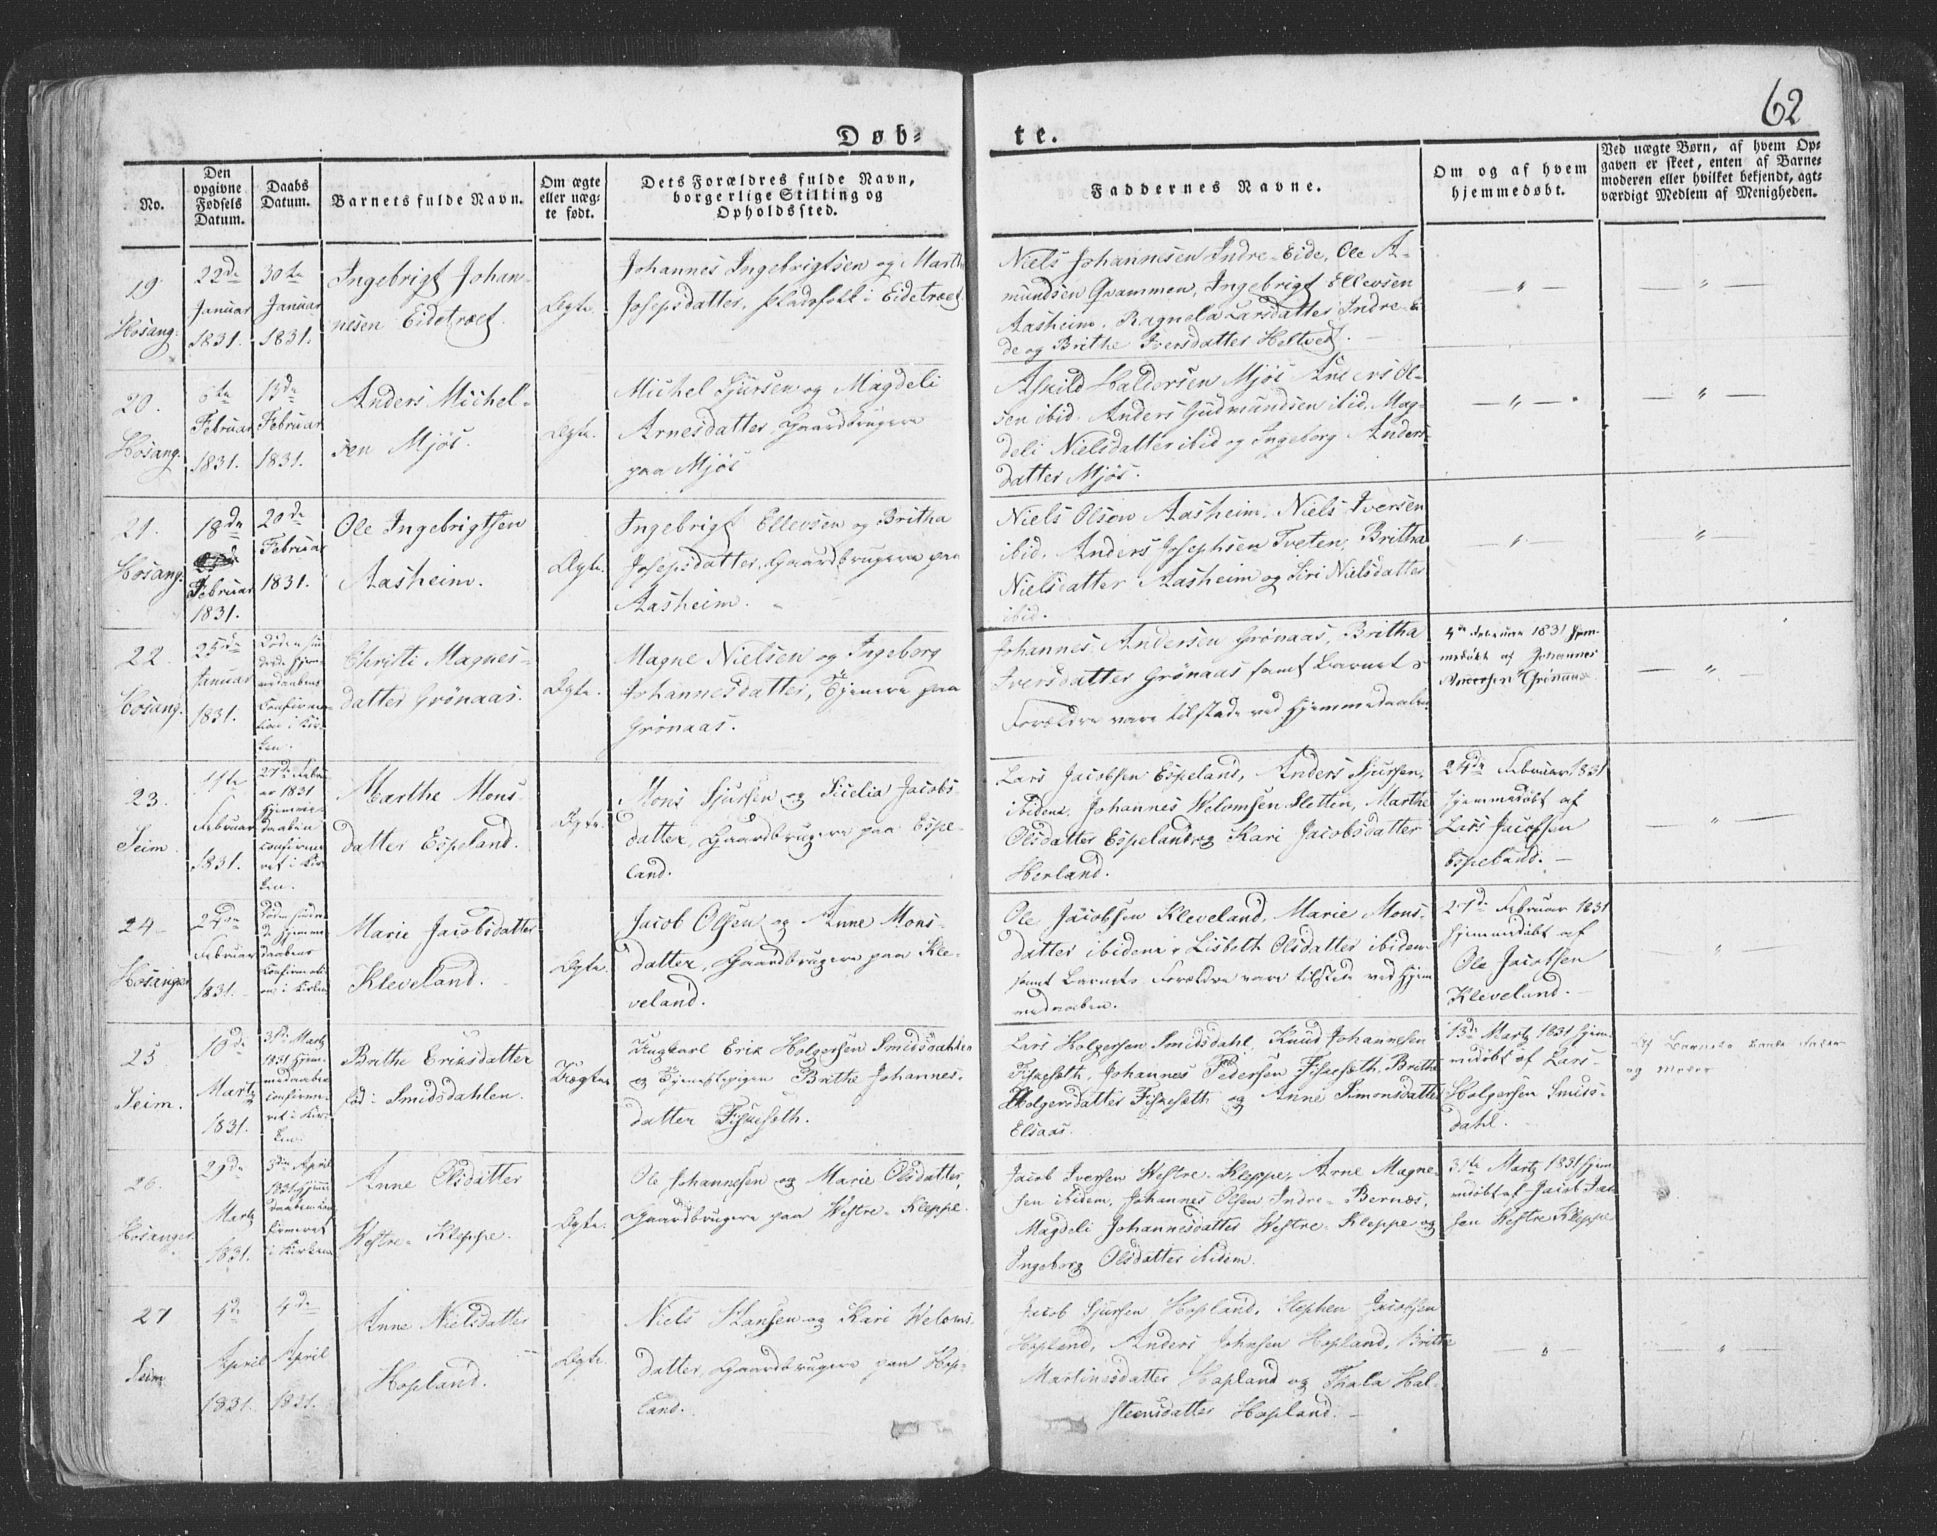 62
Døb-
te.
No.
Den opgivne Fødsels Datum.
Daabs Datum.
Barnets fulde Navn.
Om ægte eller uæg-te født.
Dets Forældres fulde Navn, borgerlige Stilling og Opholdssted.
Faddernes Navne.
Om og af hvem hjemmedøbt.
Ved uægte Børn, af hvem Op-
gaven er skeet, enten af Barne-
moderen eller hvilket bekjendt, agt-
værdigt Medlem af Menigheden.
19
Hosang.
22de
Januar
1831.
30te
Januar
1831.
Ingebrigt Johan-
nesen Eidetræet.
Ægte.
Johannes Ingebrigtsen og Marthe
Josepsdatter, Pladsfolk i Eidetræet
Niels Johannesen Indre-Eide, Ole A-
mundsen Qvammen, Ingebrigt Ellevsen
Aasheim, Ragnela Larsdatter Indre-Ei
de og Brithe Iversdatter Heltvet.
20.
Hosang.
6te
Februar
1831.
13de
Februar
1831.
Anders Michel-
sen Mjøs.
Ægte.
Michel Sjursen og Magdeli
Arnesdatter, Gaardbrugere
paa Mjøs
Askild Haldorsen Mjøs Anders Ol-
sen ibid. Anders Gudmundsen ibid, Mag-
deli Nielsdatter ibid og Ingeborg Anders-
datter Mjøs.
21.
Hosang.
18de
Februar
1831.
20de
Februar
1831.
Ole Ingebrigtsen
Aasheim.
Ægte.
Ingebrigt Ellevsen og Britha
Josepsdatter, Gaardbrugere paa
Aasheim.
Niels Olson Aasheim. Niels Iversen
ibid. Anders Josephsen Tveten, Britha
Nielsdatter Aasheim og Siri Nielsdatter
ibid.
22.
Hosang.
25de
Januar
1831.
Døden
Christi Magnes-
datter Grönaas.
Ægte.
Magne Nielsen og Ingeborg
Johannesdatter, Tjenere paa
Grönaas.
Johannes Andersen Grönaas, Britha
Iversdatter Grönaas samt Barnets
Forældre vare tilstede ved Hjemmedaaben.
Februar 1831 hjem-
medøbt af Johannes
Andersen Grönaas
23.
Seim.
Februar
1831.
27de Febru
ar 1831
hjemme-
daaben
confirme
ret i Kir-
ken.
Marthe Mons-
datter Espeland.
Ægte.
Mons Sjursen og Sicelia Jacobs-
datter, Gaardbrugere paa Espe-
land.
Lars Jacobsen Espeland, Anders Sjursen,
ibidem, Johannes Welomsen Sletten, Marthe
Olsdatter Espeland og Kari Jacobsdatter
Herland.
24de Februar 1831
hjemmedøbt af
Lars Jacobsen
Espeland.
24
Hosanger
24de
Februar
1831.
Marie Jacobsdatter
Kleveland.
Ægte.
Jacob Olsen og Anne Mons-
datter, Gaardbrugere paa Kle-
veland.
Ole Jacobsen Kleveland, Marie Mons-
datter ibidem, Lisbeth Olsdatter ibidem
samt Barnets Forældre vare tilstede ved Hjem
medaaben.
27de Februar 1831
hjemmedøbt af
Ole Jacobsen
Kleveland.
25
Seim.
10de
Martz
1831.
31de Martz
1831 hjem-
medaaben
confirme-
ret i Kir-
ken.
Brithe Eriksdatter
fød: Smidsdahlen.
Uægte
Ungkarl Erik Holgersen Smidsdahlen
og Tjenestepigen Brithe Johannes-
datter Fiskesæth.
Lars Holgersen Smidsdahl, Knud Johannesen
Fiskesæth, Johannes Pedersen Fiskesæth, Brithe
Holgersdatter Fiskesæth og Anne Simonsdatter
Elsaas.
13de Martz 1831 hjem-
medøbt af Lars
Holgersen Smids-
dahl.
Af Barnets Fader
og Moder
26.
Hosanger
29de
Martz
1831.
3die April
1831 hjem
daaben con
firmeret
i Kirken
Anne Olsdatter
Westre-Kleppe.
Ægte.
Ole Johannesen og Marie Olsdatter,
Gaardbrugere paa Westre-Kleppe.
Jacob Iversen Westre-Kleppe, Arne Magne-
sen ibidem, Johannes Olsen Indre-Bernæs,
Magdeli Johannesdatter Westre-Kleppe og
Ingeborg Olsdatter ibidem.
31te Martz 1831 hjem-
medøbt af Jacob Iver
sen Westre Kleppe
27
Seim
4de
April
1831.
4de
April
1831.
Anne Nielsdatter
Hopland.
Ægte.
Niels Hansen og Kari Weloms-
datter, Gaardbrugere paa Hop-
land.
Jacob Sjursen Hopland, Stephen Jacobsen
Hopland, Anders Johnsen Hopland, Britte
Martinesdatter Hopland og Thala Hal-
steensdatter Hopland.